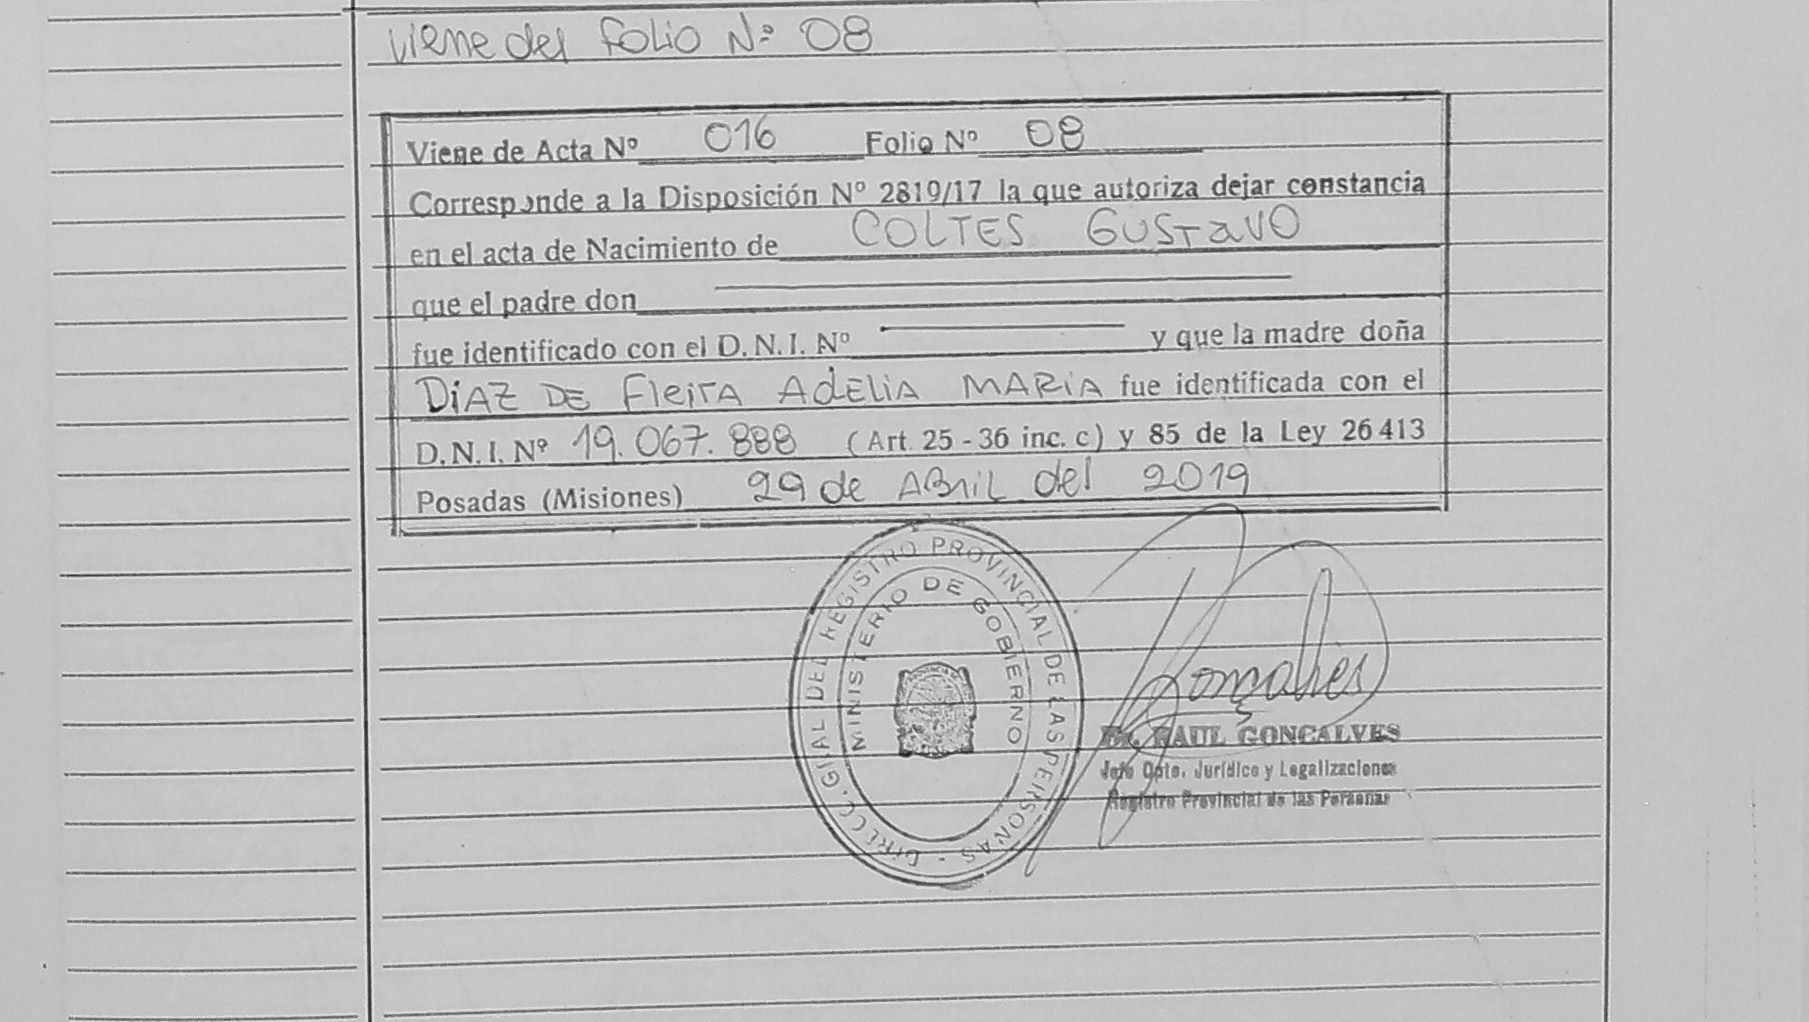 viene del folio Nº 08
Viene de Acta Nº 016 Folio Nº 08
Corresponde a la Disposición Nº 2819/17 la que autoriza dejar constancia
en el acta de Nacimiento de COLTES GUSTAVO
que el padre don
fue identificado con el D. N. I. Nº y que la madre doña
DIAZ DE FleiTA AdELiA MARiA fue identificada con el
D. N. I. Nº 19.067.888 (Art. 25 - 36 inc. c) y 85 de la Ley 26413
Posadas (Misiones) 29 de ABRiL del 2019
DIRECC. GRAL DEL REGISTRO PROVINCIAL DE LAS PERSONAS -
MINISTERIO DE GOBIERNO
Gonçalves
Dr. RAUL GONCALVES
Jefe Dpto. Jurídico y Legalizaciones
Registro Provincial de las Personas